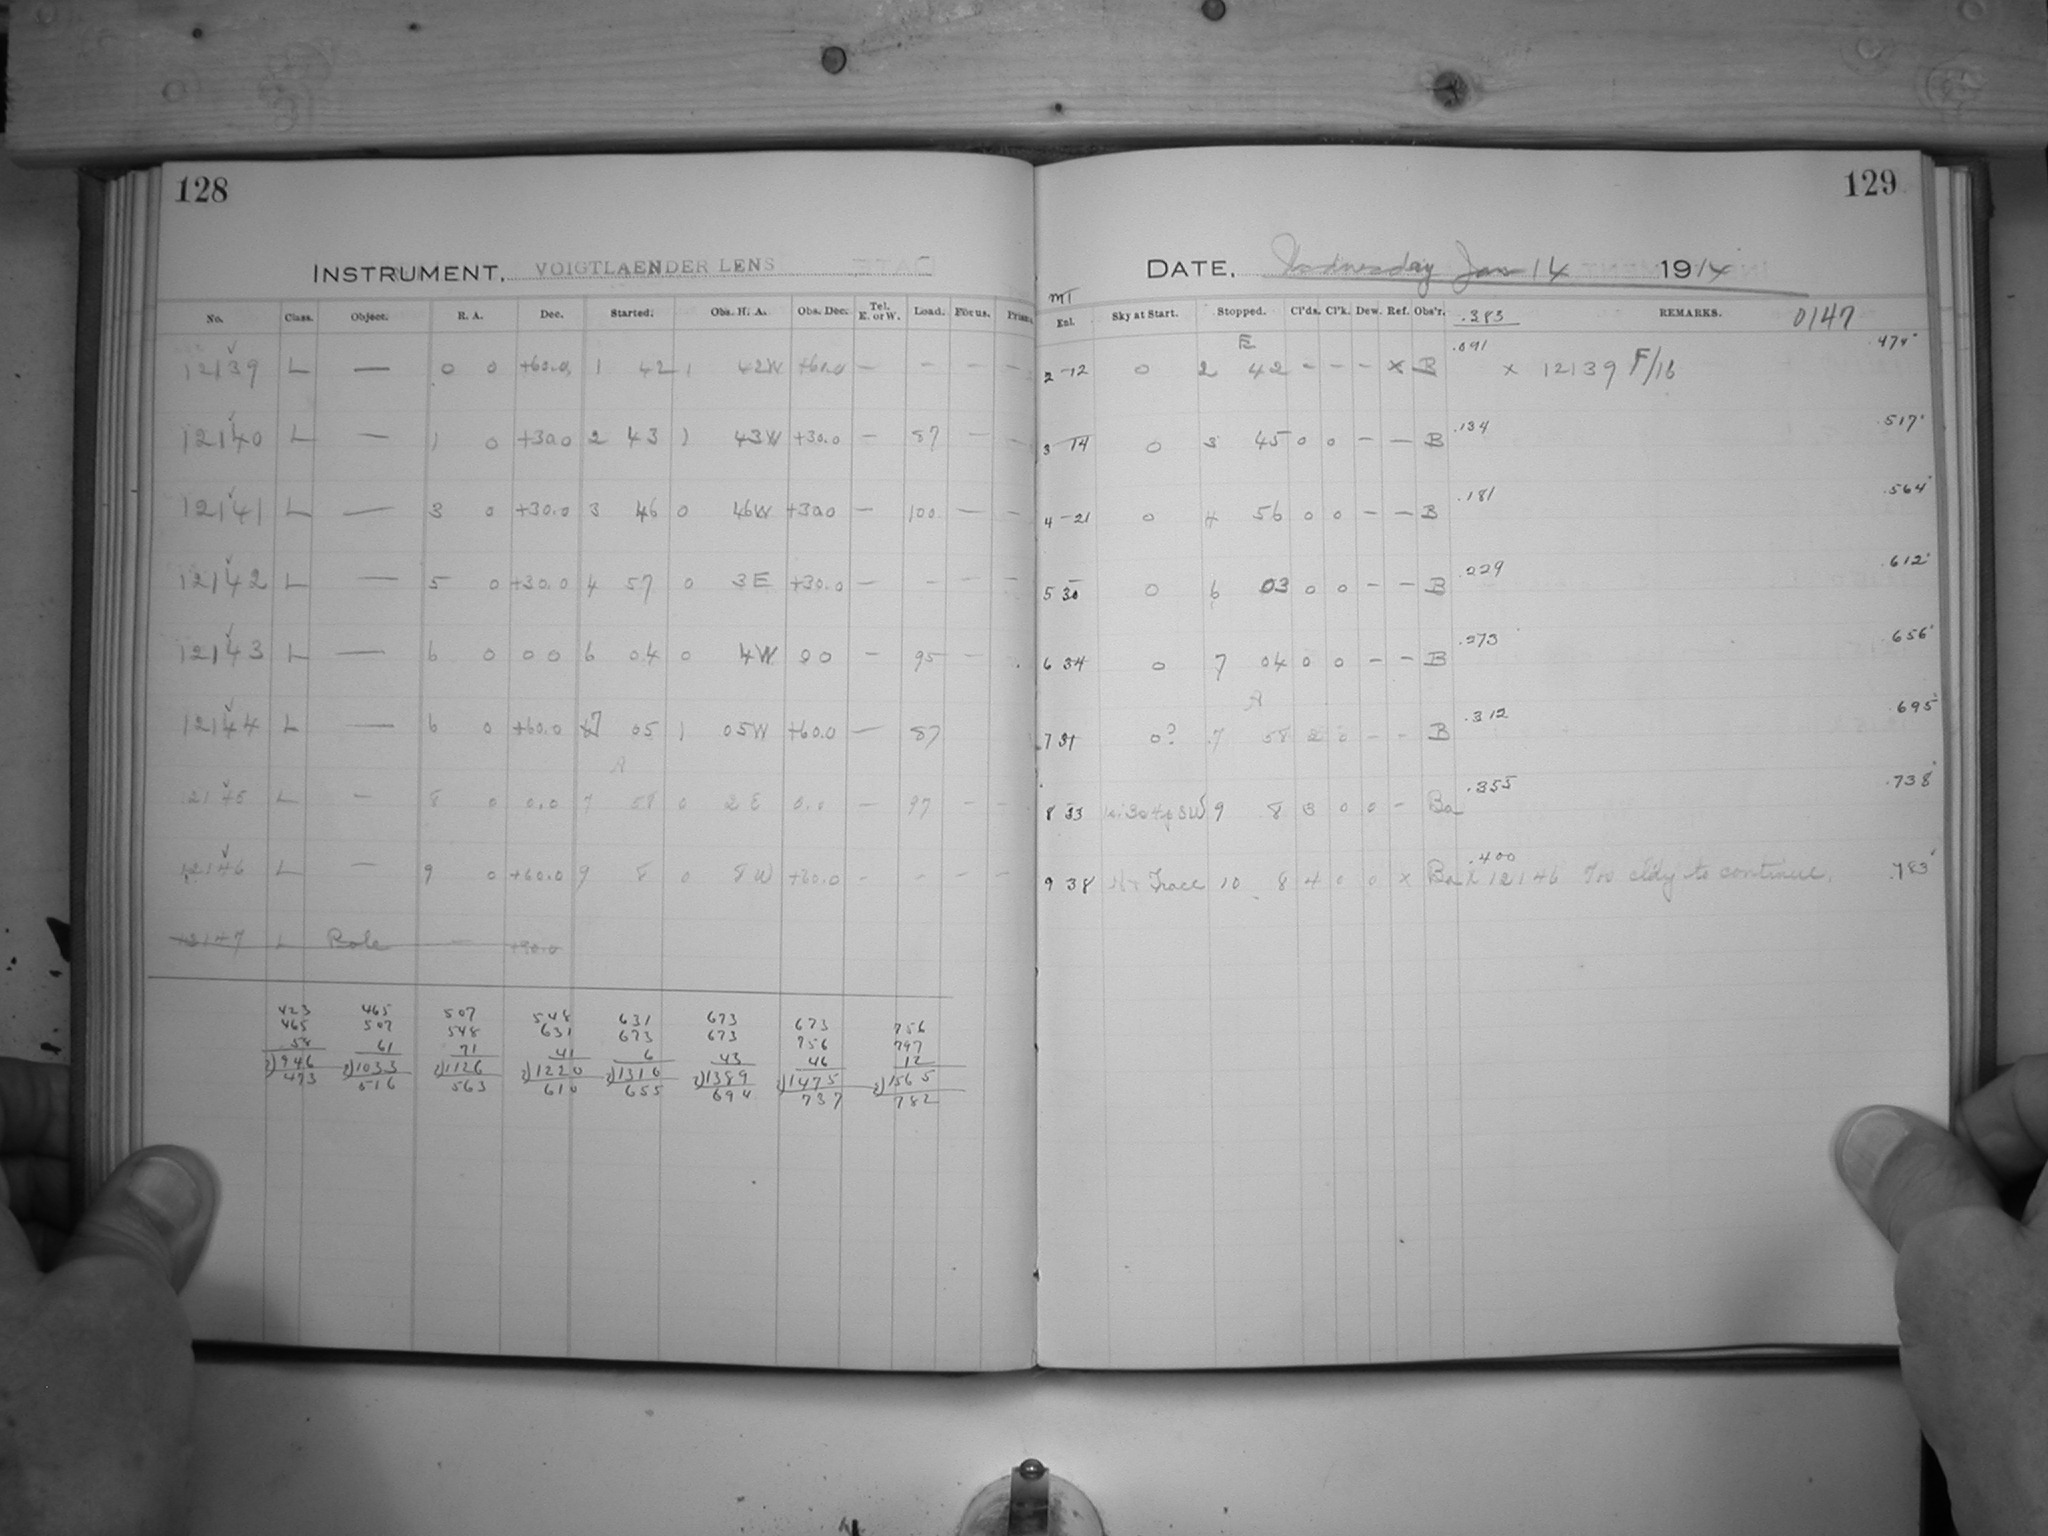 128
INSTRUMENT, VOIGTLAENDER LENS
No. Class. Object. R. A. Dec. Started. Obs. H. A. Obs. Dec. Tel. E. or W. Load. Focus. Prism.
12139 L — 0 0 +60.0 1 42 1 42W +60.0 — — — —
12140 L — 1 0 +30.0 2 43 1 43W +30.0 — 87 — —
12141 L — 3 0 +30.0 3 46 0 46W +30.0 — 100 — —
12142 L — 5 0 +30.0 4 57 0 3E +30.0 — — — —
12143 L — 6 0 0 0 6 04 0 4W 0 0 — 95 —
12144 L — 6 0 +60.0 7 05 1 05W +60.0 — 87
12145 L — 8 0 0.0 7 58 0 2E 0.0 — 97 — —
12146 L — 9 0 +60.0 9 8 0 8W +60.0 - - — —
12147 L Pole — +90.0
423 465 507 548 631 673 673 756
465 507 548 631 673 673 756 797
58 61 71 41 6 43 46 12
2)946 2)1033 2)1126 2)1220 2)1310 2)1389 2)1475 2)1565
473 516 563 610 655 694 737 782
129
DATE, Wednesday Jan 14 1914
MT
Enl. Sky at Start. Stopped. Cl'ds. Cl'k. Dew. Ref. Obs'r. .383 REMARKS. 0147
2 12 0 2 E 42 - - - x B .091 x 12139 F/16 .474
3 14 0 3 45 0 0 - — B .134 .517
4 21 0 4 56 0 0 — — B .181 .564
5 30 0 6 03 0 0 - - B .229 .612
6 34 0 7 04 0 0 - - B .273 .656
7 31 0? 7 58 2 0 - - B .312 .695
8 33 9 8 3 0 0 - Ba .355 .738
9 38 Trace 10 8 4 0 0 x Ba .400 x 12146 Too cldy to continue. .783